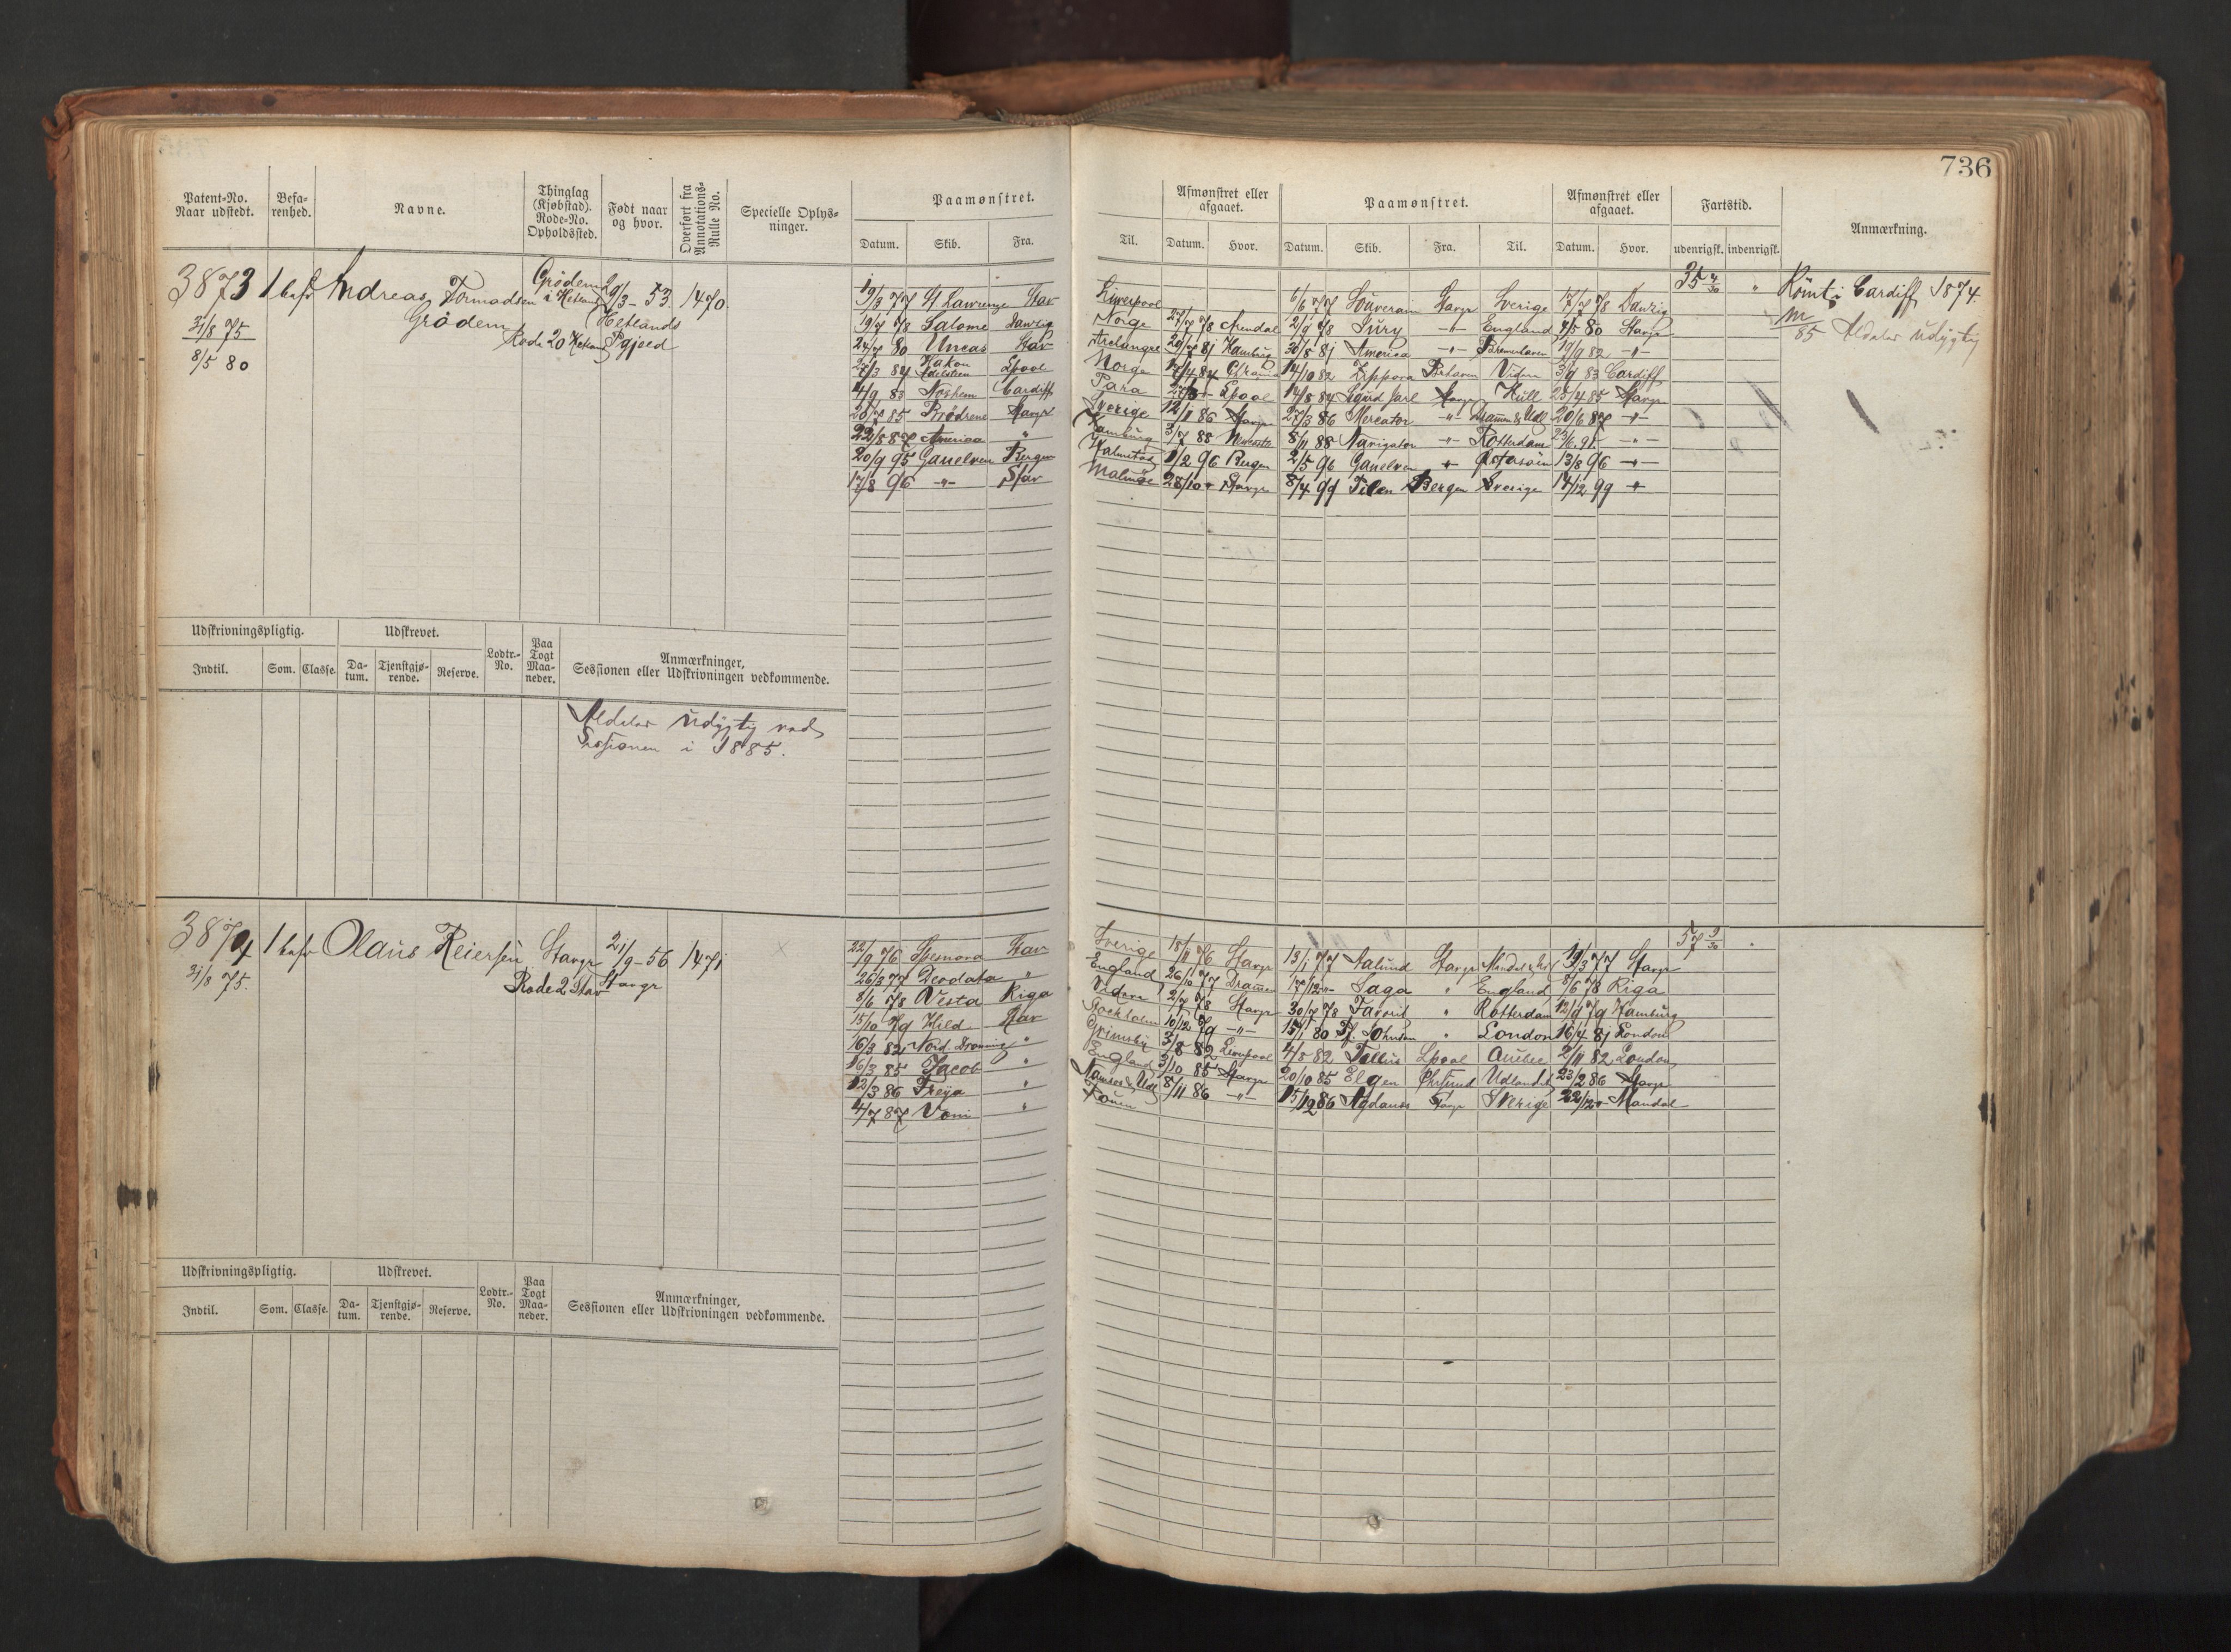 736
Patent-No. Naar udstedt. Befa-renhed. Navne. Thinglag (Kjøbstad). Rode-No. Opholdssted. Født naar og hvor. Overført fra Annotations-Rulle No. Specielle Oplys-ninger. Paamønstret.
Datum. Skib. Fra.
Til. Afmønstret eller afgaaet. Datum. Hvor. Paamønstret. Datum. Skib. Fra. Til. Afmønstret eller afgaaet. Datum. Hvor. Fartstid. udenrigsk. indenrigsk. Anmærkning.
3873 1 bafr Andreas Tormodsen Grödem i Hetland 29/3-53 1470
Grödem Hetlands
31/8 75 Rode 20 Hetland Pgjeld
8/5 80
35 4/30 " Römt i Cardiff 1874.
85 Aldeles udygtig
9/3 77 St Lawrence Stav Liverpool 6/6 77 Souverain Stavgr Sverige 17/7 78 Danzig
19/7 78 Salome Danzig Norge 27/7 78 Arendal 2/9 78 Fury -"- England 4/5 80 Stavgr
24/7 80 Uncas Stav Archangel 29/7 81 Hamburg 30/8 81 America -"- Bremerhaven 17/9 82 -"-
27/3 84 Hakon Adelsten Lpool Norge 17/4 84 14/10 82 Zippora Brhaven Vidern 3/9 83 Cardiff
14/9 83 Cardiff Para Lpool 14/8 84 Sigurd Jarl Stavgr Hull 25/4 85 Stavgr
20/7 85 Brödrene Stavgr Sverige 12/11 86 Stavgr 27/3 86 Mercator -"- Dramm & Udl 20/6 87 -"-
22/8 87 America " Hamburg 3/7 88 8/11 88 Navigator -"- Rotterdam 23/6 91 -"-
20/9 95 Ganelven Bergen Halmstad 1/2 96 Bergen 2/5 96 Ganelven -"- 13/8 96 -"-
17/8 96 -"- Stav Malmöe 28/10 - Stavgr 8/4 99 Bergen Sverige 14/12 99 -"-
Udskrivningspligtig. Udskrevet. Lodtr.-No. Paa Togt Maa-neder. Anmærkninger, Sessionen eller Udskrivningen vedkommende.
Indtil. Som. Classe. Da-tum. Tjenstgjø-rende. Reserve.
Aldeles udygtig ved
Sessionen i 1885.
3874 1 bafr Olaus Reiersen Stavgr 21/9-56 1471
31/8 75 Rode 2 Stav Stavgr
57 9/30
22/9 76 Spernova Stav Sverige 18/11 76 Stavgr 13/1 77 Salund Stavgr Mandal & Udl 19/3 77 Stavgr
26/3 77 Deodata " England 26/10 77 Dramm 17/12 - Saga " England 8/6 78 Riga
8/6 78 Vesta Riga Vidern 2/7 78 Stavgr 30/7 78 Favorit " Rotterdam 12/9 79 Hamburg
15/10 79 Hild Stav Stockholm 10/12 79 -"- 15/1 80 " London 16/4 81 London
16/3 82 Nord. Dronning " Grimsby 3/8 82 Liverpool 4/8 82 Tellus Lpool Quebec 2/11 82 London
16/3 85 Jacob " England 3/10 85 Stavgr 20/10 85 Elgen Ehrsund Udlandet 23/2 86 Stavgr
12/3 86 Freya " Namsos & Udl 8/11 86 -"- 15/12 86 Stavgr Sverige 22/12 - Mandal
4/7 87 Voni "
Udskrivningspligtig. Udskrevet. Lodtr.-No. Paa Togt Maa-neder. Anmærkninger, Sessionen eller Udskrivningen vedkommende.
Indtil. Som. Classe. Da-tum. Tjenstgjø-rende. Reserve.